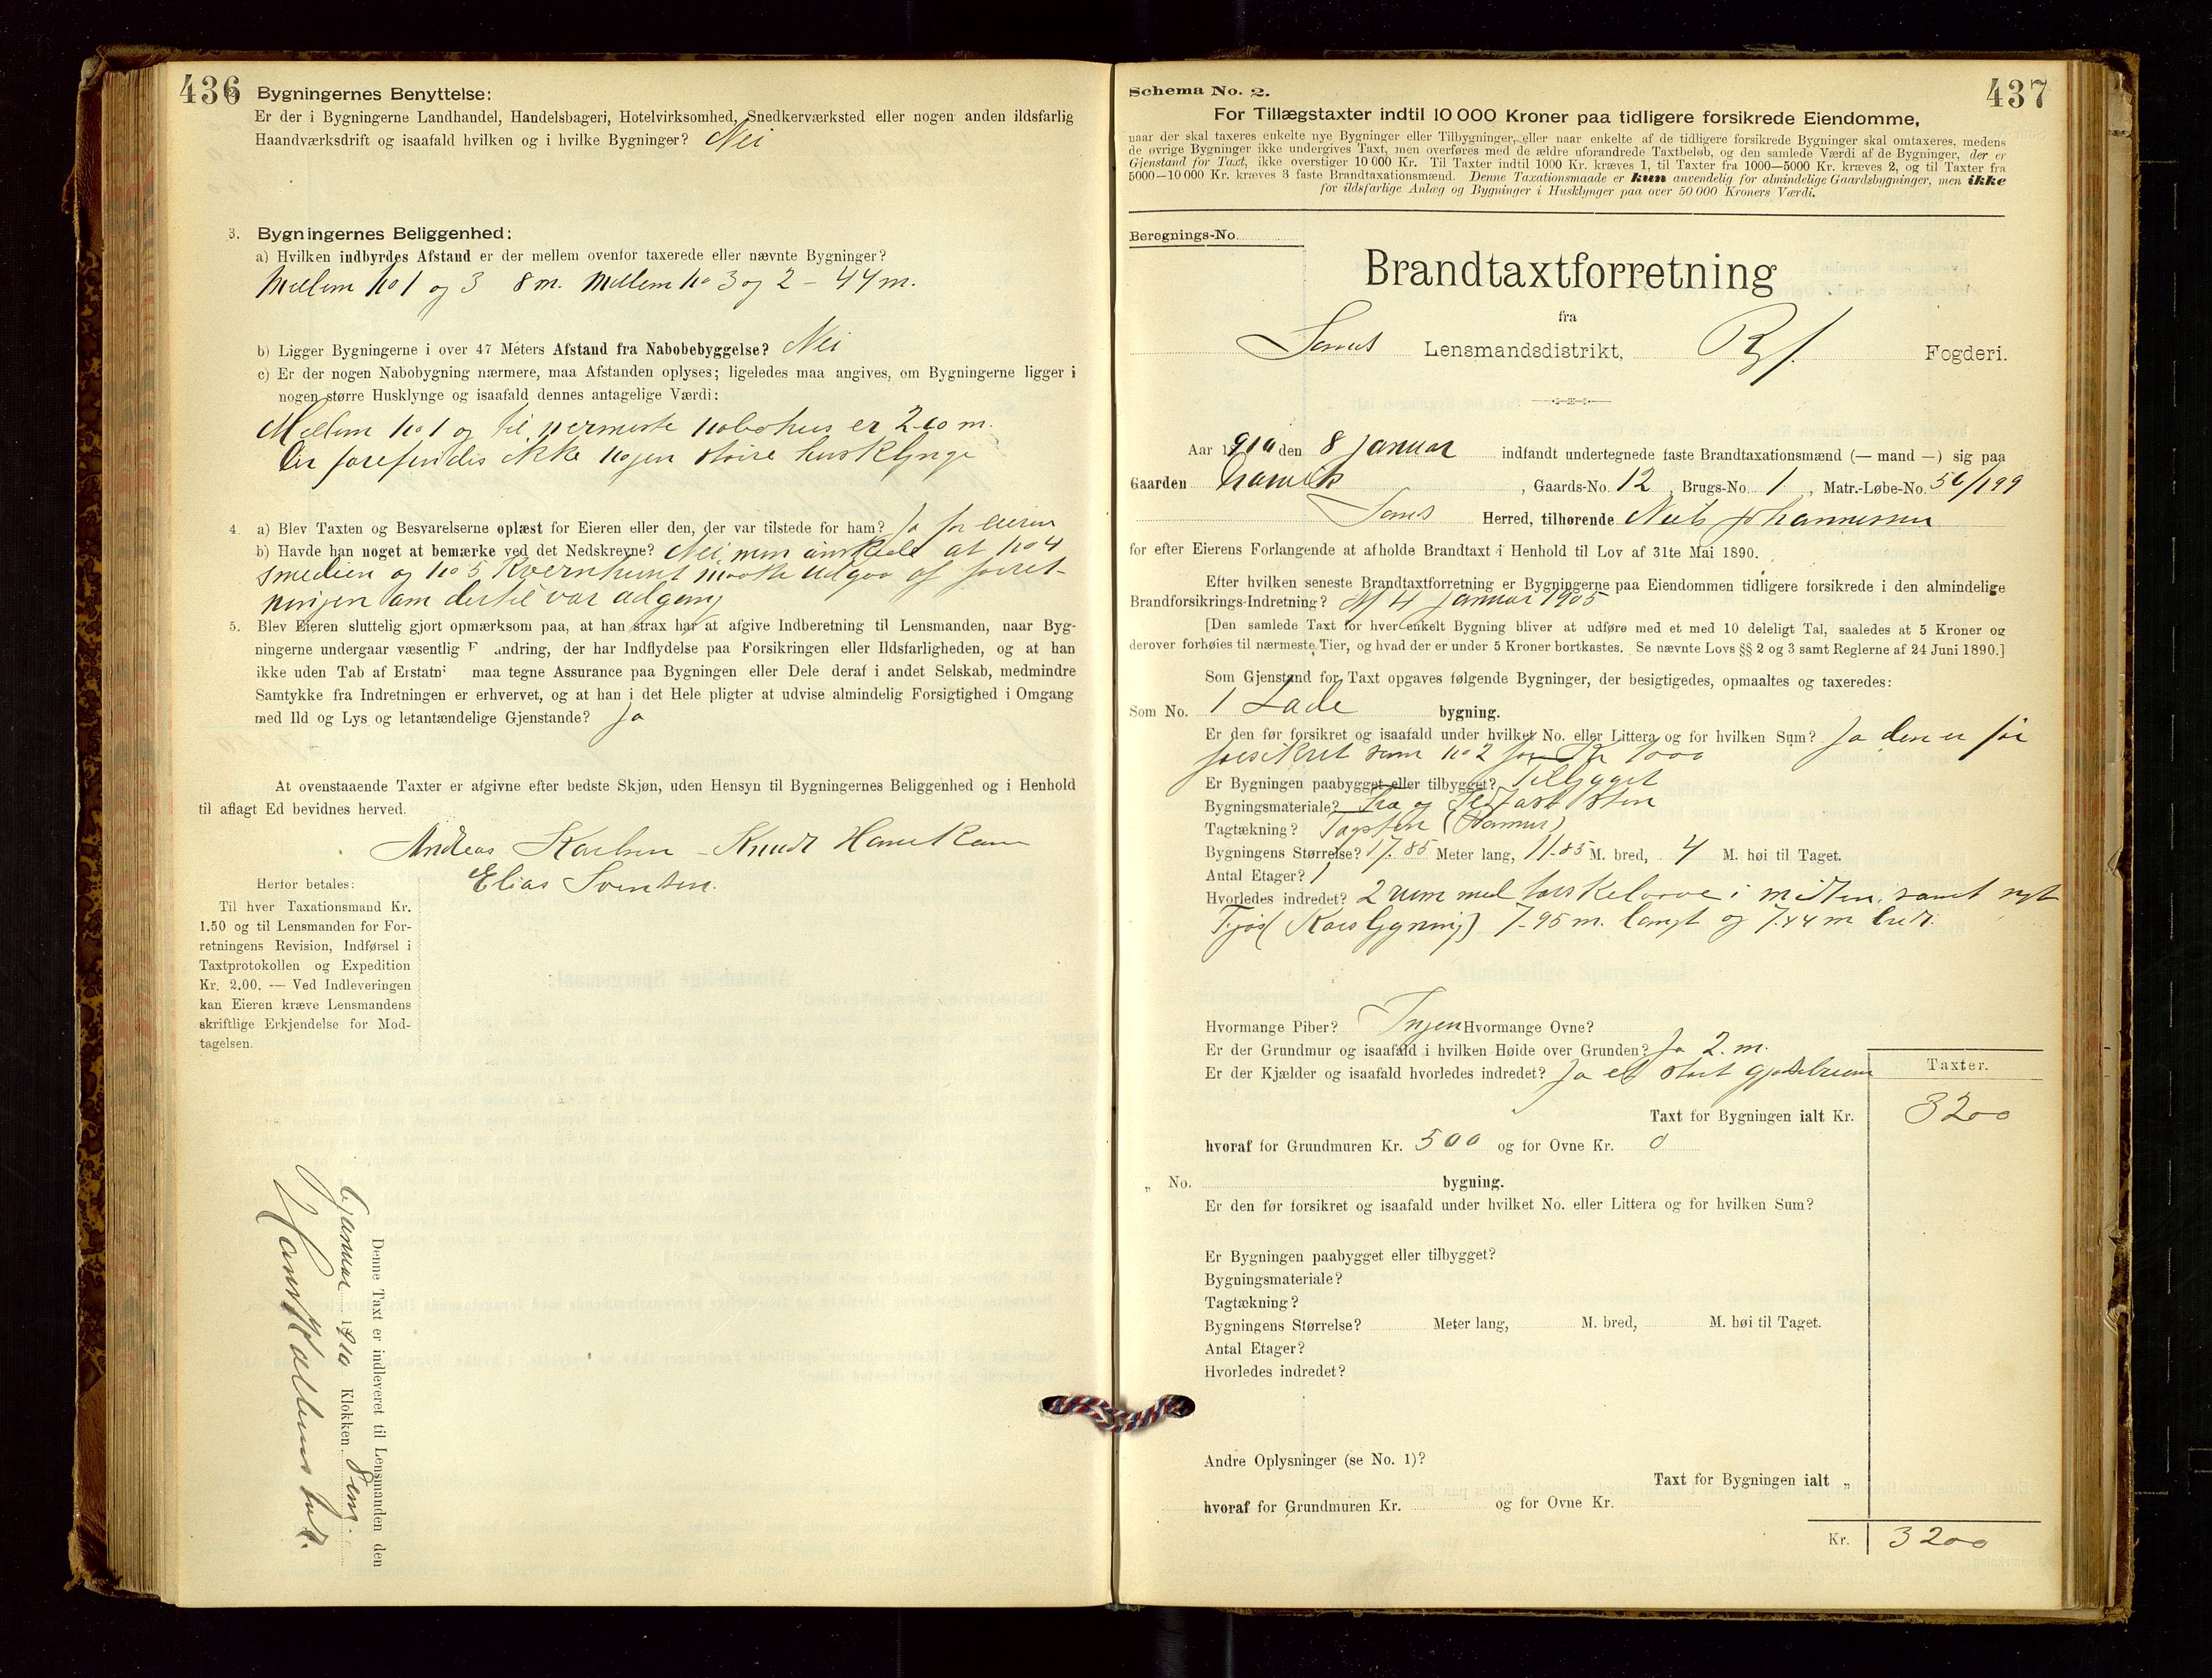 436
Bygningernes Benyttelse:
Er der i Bygningerne Landhandel, Handelsbageri, Hotelvirksomhed, Snedkerværksted eller nogen anden ildsfarlig
Haandværksdrift og isaafald hvilken og i hvilke Bygninger? Nei
3. Bygningernes Beliggenhed:
a) Hvilken indbyrdes Afstand er der mellem ovenfor taxerede eller nævnte Bygninger?
Mellem No 1 og 3 8 m. Mellem No 3 og 2 – 44 m.
b) Ligger Bygningerne i over 47 Meters Afstand fra Nabobebyggelse? Nei
c) Er der nogen Nabobygning nærmere, maa Afstanden oplyses; ligeledes maa angives, om Bygningerne ligger i
nogen større Husklynge og isaafald dennes antagelige Værdi:
Mellem No 1 og til nermeste nabohus er 200 m.
Der forefindes ikke nogen större husklynge
4. a) Blev Taxten og Besvarelserne oplæst for Eieren eller den, der var tilstede for ham? Ja for eieren
b) Havde han noget at bemærke ved det Nedskrevne? Nei men önskede at No 4
smedien og No 5 Kvernhuset maatte udgaa af forret-
ningen om dertil var adgang
5. Blev Eieren sluttelig gjort opmærksom paa, at han strax har at afgive Indberetning til Lensmanden, naar Byg-
ningerne undergaar væsentlig F andring, der har Indflydelse paa Forsikringen eller Ildsfarligheden, og at han
ikke uden Tab af Erstatni maa tegne Assurance paa Bygningen eller Dele deraf i andet Selskab, medmindre
Samtykke fra Indretningen er erhvervet, og at han i det Hele pligter at udvise almindelig Forsigtighed i Omgang
med Ild og Lys og letantændelige Gjenstande? Ja
At ovenstaaende Taxter er afgivne efter bedste Skjøn, uden Hensyn til Bygningernes Beliggenhed og i Henhold
til aflagt Ed bevidnes herved.
Andreas Karlsen – Knudt
Elias Svensen.
Herfor betales:
Til hver Taxationsmand Kr.
1.50 og til Lensmanden for For-
retningens Revision, Indførsel i
Taxtprotokollen og Expedition
Kr. 2.00. — Ved Indleveringen
kan Eieren kræve Lensmandens
skriftlige Erkjendelse for Mod-
tagelsen.
Denne Taxt er indleveret til Lensmanden den
Januar 1910 Klokken 8 em.
437
Schema No. 2.
For Tillægstaxter indtil 10 000 Kroner paa tidligere forsikrede Eiendomme,
naar der skal taxeres enkelte nye Bygninger eller Tilbygninger, eller naar enkelte af de tidligere forsikrede Bygninger skal omtaxeres, medens
de øvrige Bygninger ikke undergives Taxt, men overføres med de ældre uforandrede Taxtbeløb, og den samlede Værdi af de Bygninger, der er
Gjenstand for Taxt, ikke overstiger 10 000 Kr. Til Taxter indtil 1000 Kr. kræves 1, til Taxter fra 1000—5000 Kr. kræves 2, og til Taxter fra
5000—10 000 Kr. kræves 3 faste Brandtaxationsmænd. Denne Taxationsmaade er kun anvendelig for almindelige Gaardsbygninger, men ikke
for ildsfarlige Anlæg og Bygninger i Husklynger paa over 50 000 Kroners Værdi.
Beregnings-No.
Brandtaxtforretning
fra
Lensmandsdistrikt, Ryf. Fogderi.
Aar 1910 den 8 Januar indfandt undertegnede faste Brandtaxationsmænd (— mand —) sig paa
Gaarden , Gaards-No. 12, Brugs-No. 1, Matr.-Løbe-No. 56/199
Herred, tilhørende Niels Johannessen
for efter Eierens Forlangende at afholde Brandtaxt i Henhold til Lov af 31te Mai 1890.
Efter hvilken seneste Brandtaxtforretning er Bygningerne paa Eiendommen tidligere forsikrede i den almindelige
Brandforsikrings-Indretning? Af 4 Januar 1905
[Den samlede Taxt for hver enkelt Bygning bliver at udføre med et med 10 deleligt Tal, saaledes at 5 Kroner og
derover forhøies til nærmeste Tier, og hvad der er under 5 Kroner bortkastes. Se nævnte Lovs §§ 2 og 3 samt Reglerne af 24 Juni 1890.]
Som Gjenstand for Taxt opgaves følgende Bygninger, der besigtigedes, opmaaltes og taxeredes:
Som No. 1 Lade bygning.
Er den før forsikret og isaafald under hvilket No. eller Littera og for hvilken Sum? Ja den er för
forsikret som No 2 for Kr 1000
Er Bygningen paabygget eller tilbygget? Tilbygget
Bygningsmateriale? Træ og ildfast sten
Tagtækning? Tagsten (Panner)
Bygningens Størrelse? 17.85 Meter lang, 11.85 M. bred, 4 M. høi til Taget.
Antal Etager? 1
Hvorledes indredet? 2 rum med torskelaave i midten, samt nyt
Fjøs (Korsbygning) 7.95 m. langt og 7.44 m bredt.
Hvormange Piber? Ingen Hvormange Ovne?
Er der Grundmur og isaafald i hvilken Høide over Grunden? Ja 2. m.
Er der Kjælder og isaafald hvorledes indredet? Ja et stort gjödselrum
Taxter.
Taxt for Bygningen ialt Kr. 3200
hvoraf for Grundmuren Kr. 500 og for Ovne Kr. 0
„ No. bygning.
Er den før forsikret og isaafald under hvilket No. eller Littera og for hvilken Sum?
Er Bygningen paabygget eller tilbygget?
Bygningsmateriale?
Tagtækning?
Bygningens Størrelse? Meter lang, M. bred, M. høi til Taget.
Antal Etager?
Hvorledes indredet?
Andre Oplysninger (se No. 1)?
Taxt for Bygningen ialt „
hvoraf for Grundmuren Kr. og for Ovne Kr.
Kr. 3200